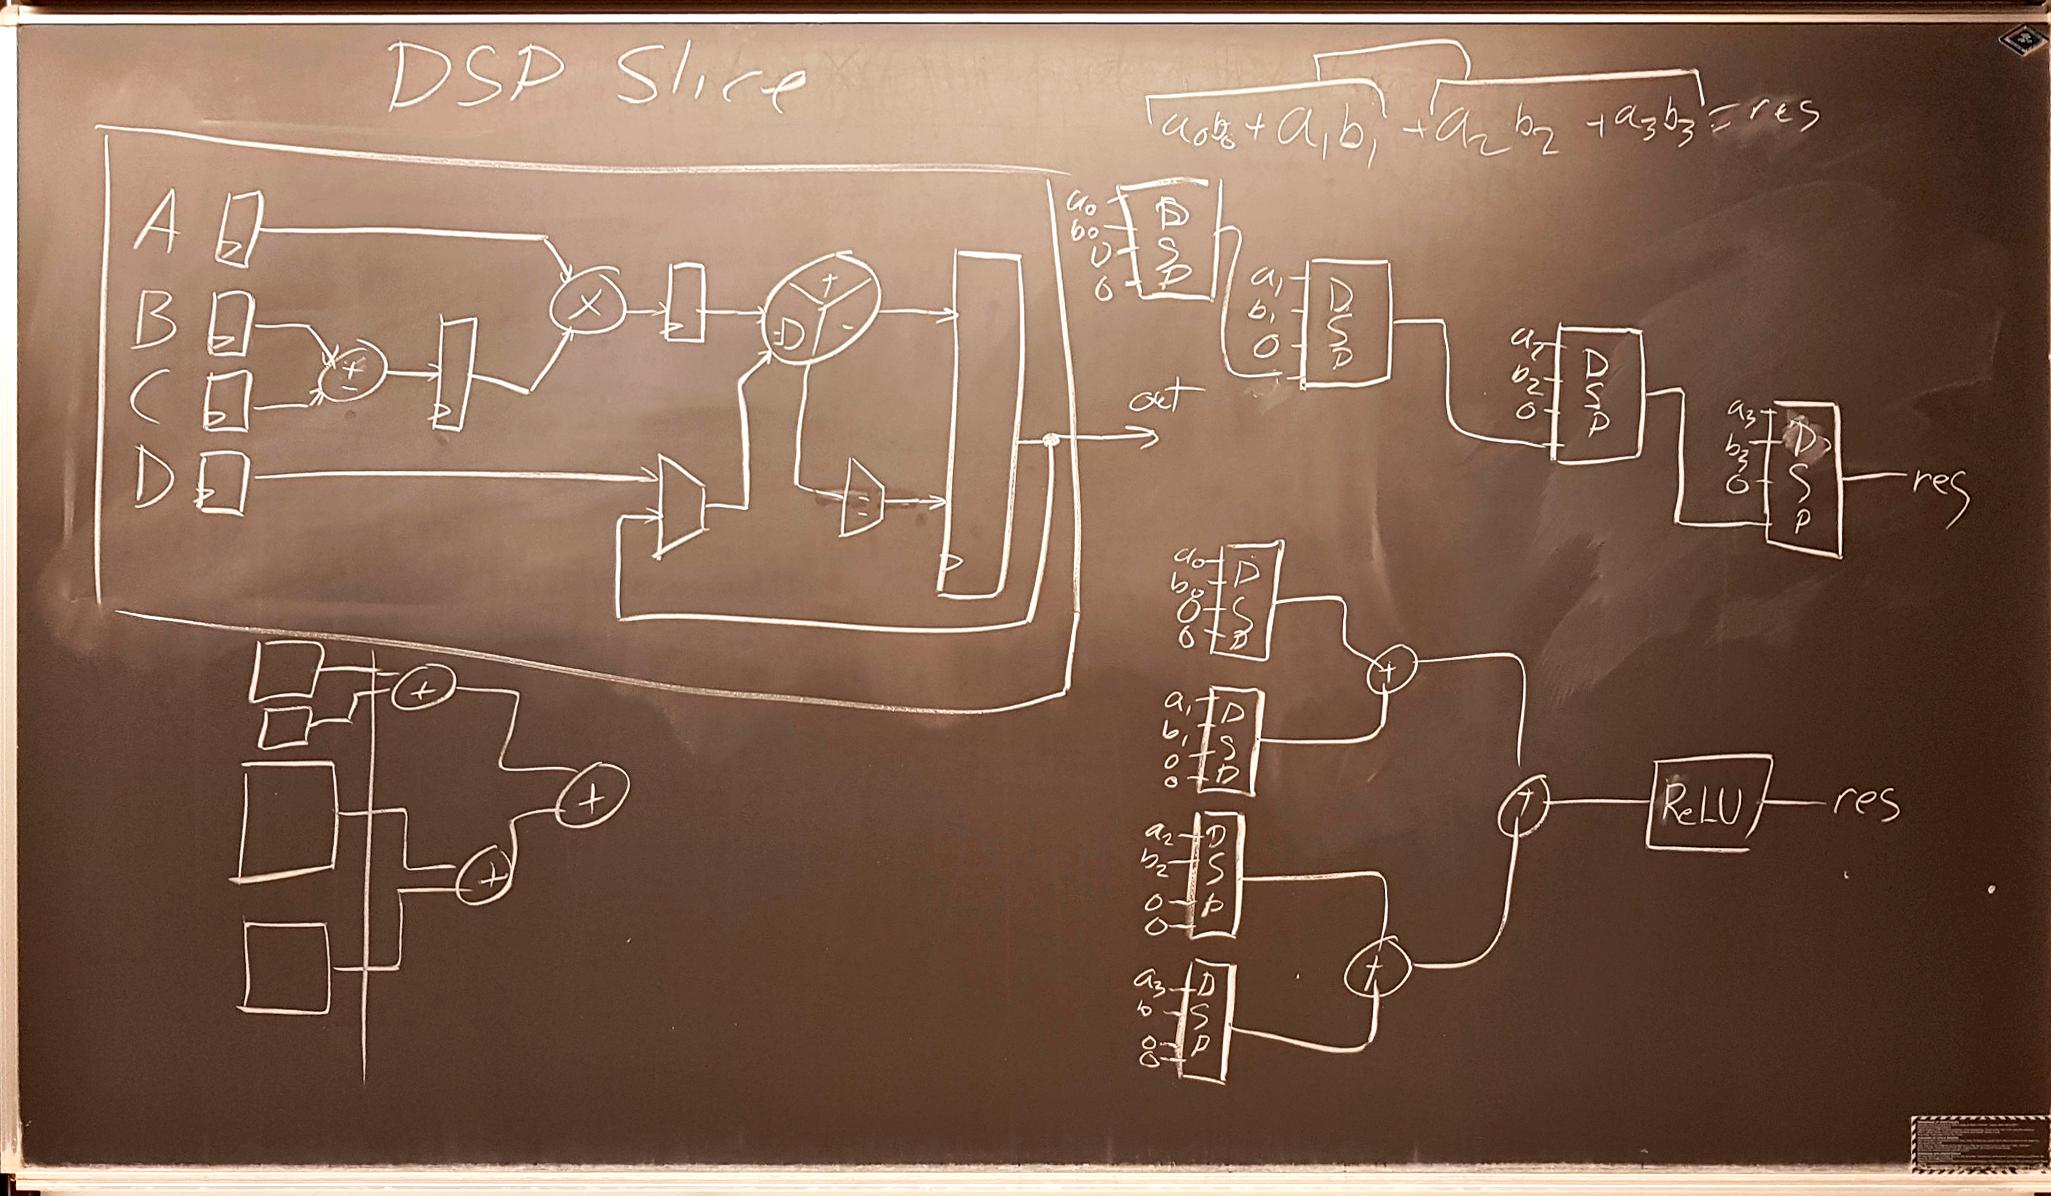 DSP Slice
a₀b₀ + a₁b₁ + a₂b₂ + a₃b₃ = res
A
B
C
D
+
-
X
+
D
-
=
out
a₀
b₀
0
0
DSP
a₁
b₁
0
DSP
a₂
b₂
0
DSP
a₃
b₃
0
DSP
res
a₀
b₀
0
0
DSP
+
a₁
b₁
0
0
DSP
+
ReLU
res
a₂
b₂
0
0
DSP
+
a₃
b
0
0
DSP
+
+
+